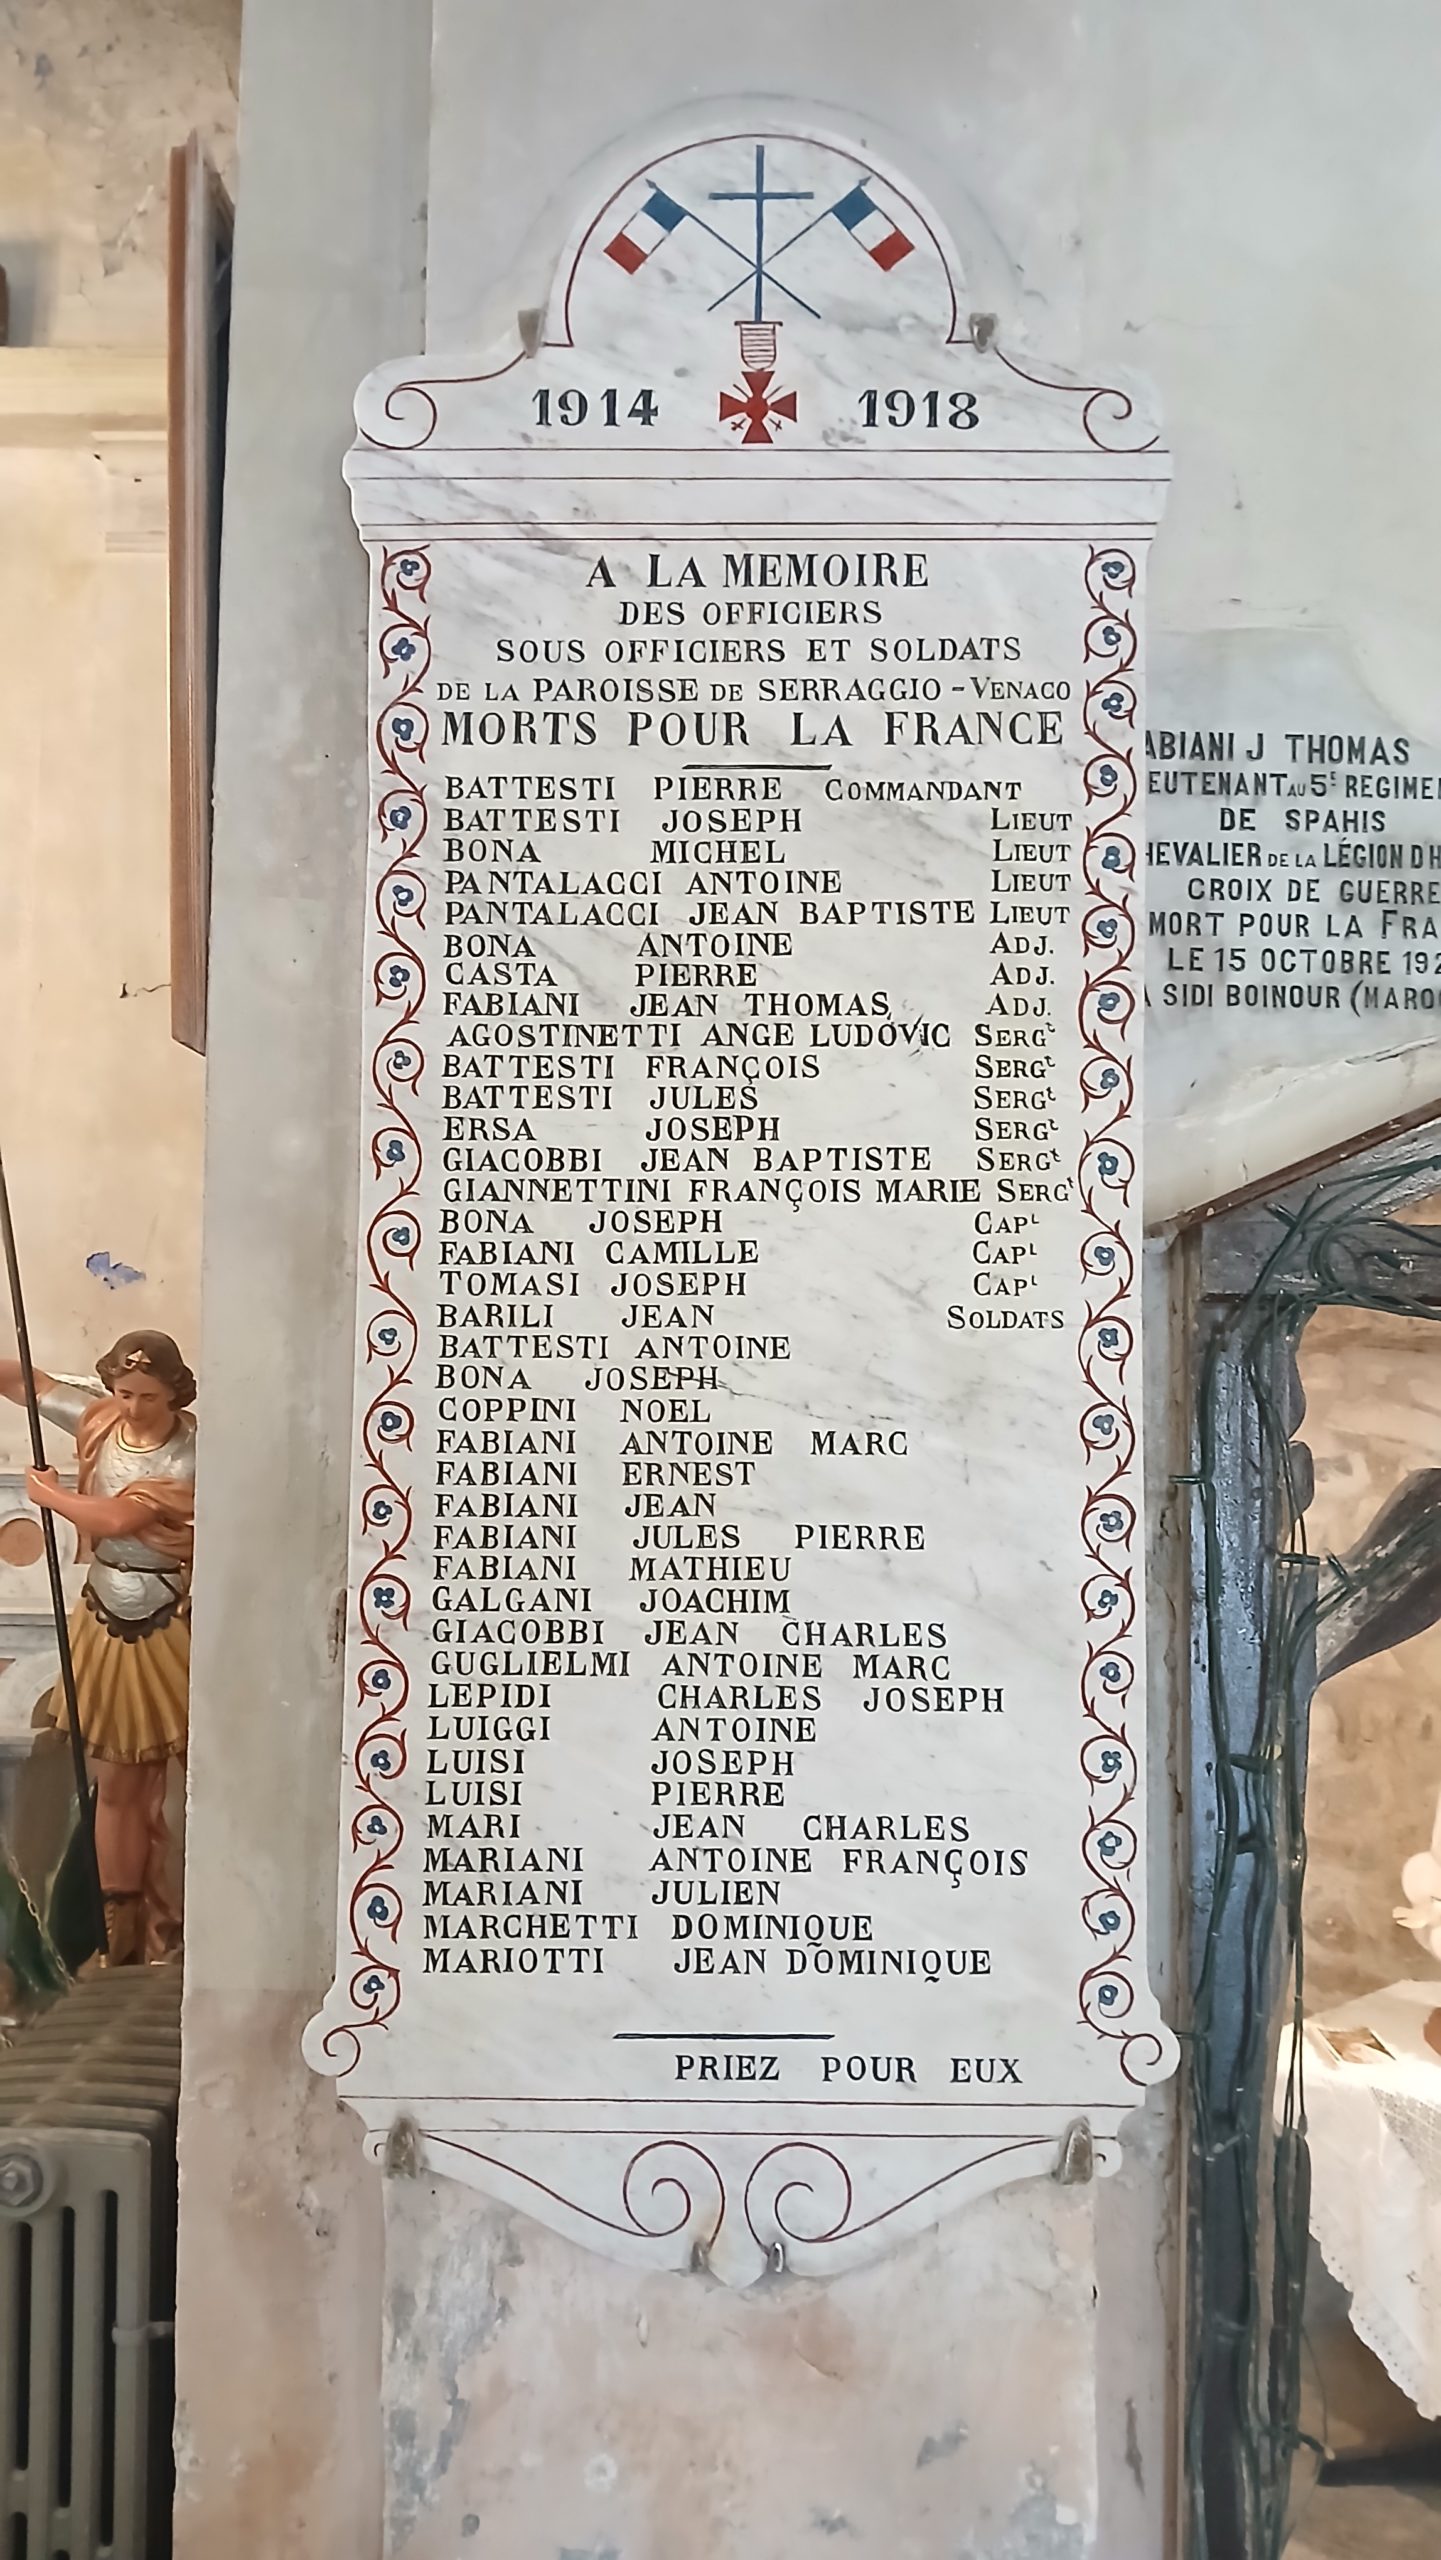 1914 1918
A LA MEMOIRE
DES OFFICIERS
SOUS OFFICIERS ET SOLDATS
DE LA PAROISSE DE SERRAGGIO - VENACO
MORTS POUR LA FRANCE
BATTESTI PIERRE COMMANDANT
BATTESTI JOSEPH LIEUT
BONA MICHEL LIEUT
PANTALACCI ANTOINE LIEUT
PANTALACCI JEAN BAPTISTE LIEUT
BONA ANTOINE ADJ.
CASTA PIERRE ADJ.
FABIANI JEAN THOMAS ADJ.
AGOSTINETTI ANGE LUDOVIC SERGt
BATTESTI FRANÇOIS SERGt
BATTESTI JULES SERGt
ERSA JOSEPH SERGt
GIACOBBI JEAN BAPTISTE SERGt
GIANNETTINI FRANÇOIS MARIE SERGt
BONA JOSEPH CAPL
FABIANI CAMILLE CAPL
TOMASI JOSEPH CAPL
BARILI JEAN SOLDATS
BATTESTI ANTOINE
BONA JOSEPH
COPPINI NOEL
FABIANI ANTOINE MARC
FABIANI ERNEST
FABIANI JEAN
FABIANI JULES PIERRE
FABIANI MATHIEU
GALGANI JOACHIM
GIACOBBI JEAN CHARLES
GUGLIELMI ANTOINE MARC
LEPIDI CHARLES JOSEPH
LUIGGI ANTOINE
LUISI JOSEPH
LUISI PIERRE
MARI JEAN CHARLES
MARIANI ANTOINE FRANÇOIS
MARIANI JULIEN
MARCHETTI DOMINIQUE
MARIOTTI JEAN DOMINIQUE
PRIEZ POUR EUX
ABIANI J THOMAS
EUTENANT AU 5E REGIME
DE SPAHIS
HEVALIER DE LA LÉGION D H
CROIX DE GUERRE
MORT POUR LA FRA
LE 15 OCTOBRE 192
A SIDI BOINOUR (MARO